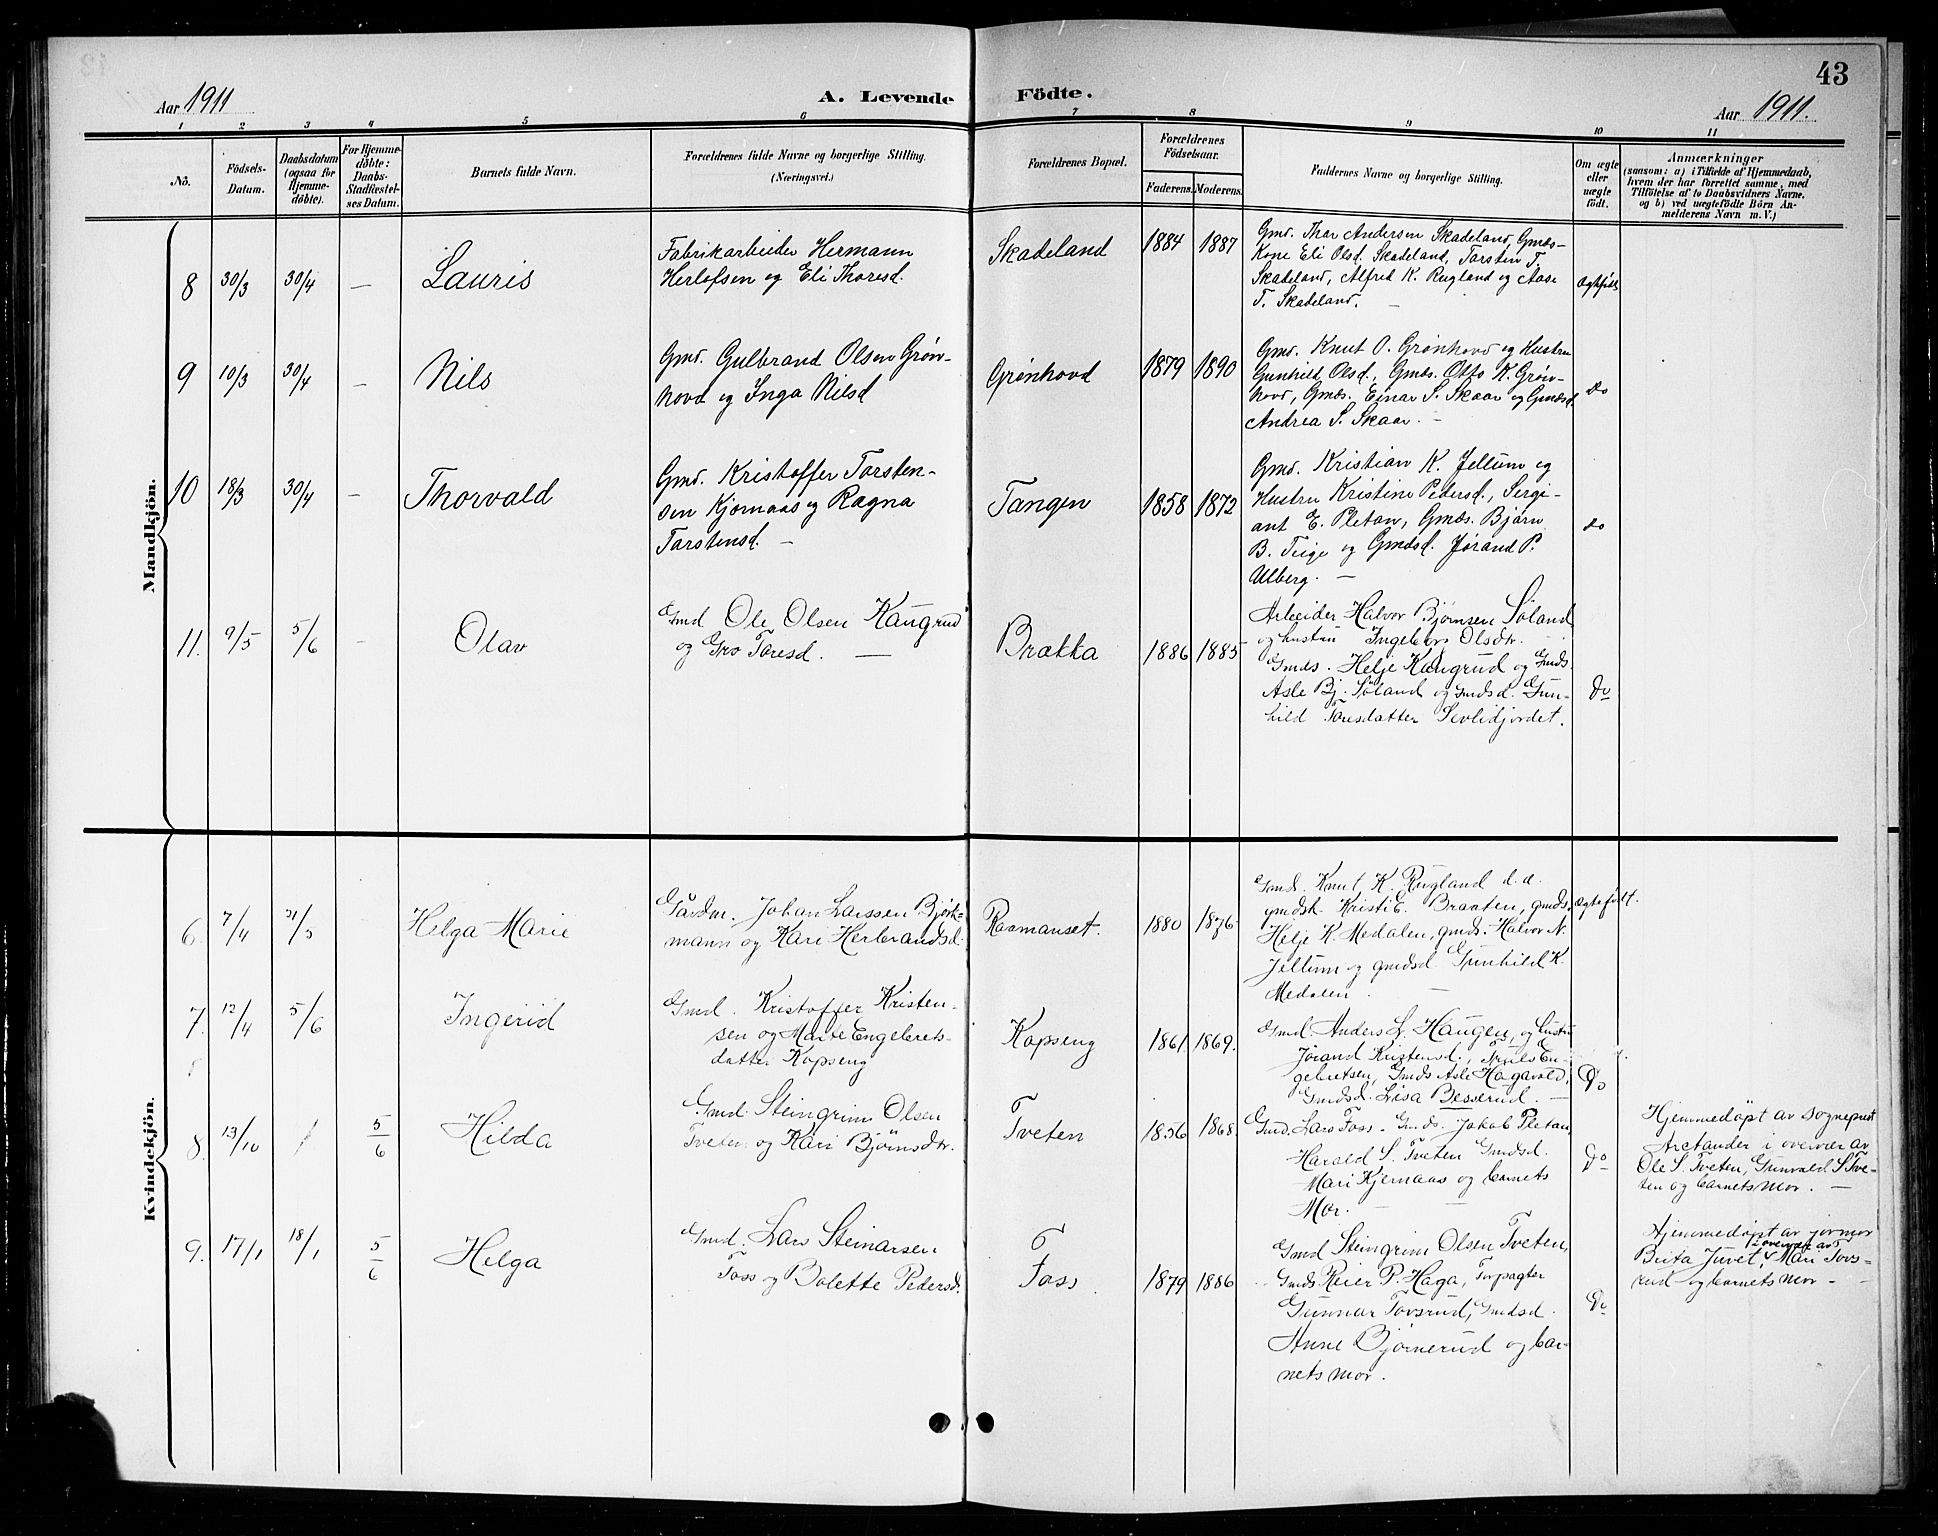 43
Aar 1911
A. Levende Födte.
Aar 1911.
1 2 3 4 5 6 7 8 9 10 11
No.
Födsels-
Datum.
Daabsdatum
(ogsaa for
Hjemme-
døbte).
For Hjemme-
døbte:
Daabs-
Stadfæstel-
ses Datum.
Barnets fulde Navn.
Forældrenes fulde Navne og borgerlige Stilling.
(Næringsvei.)
Forældrenes Bopæl.
Forældrenes
Födselsaar.
Faderens. Moderens.
Faddernes Navne og borgerlige Stilling.
Om ægte
eller
uægte
født.
Anmærkninger
(saasom: a) i Tilfælde af Hjemmedaab,
hvem der har forrettet samme, med
Tilföielse af to Daabsvidners Navne,
og b) ved uægtefödte Börn An-
melderens Navn m. V.)
Mandkjön.
8 30/3 30/4 —
Lauris
Fabrikarbeider Hermann
Herlofsen og Eli Thoresd.
Skadeland
1884 1887
Gmd. Thor Andersen Skadeland, Gmds-
Kone Eli Olsd. Skadeland, Torstin T.
Skadeland, Alfred K. Rugland og Aase
T. Skadeland. —
Ægtefødt
9 10/3 30/4 —
Nils
Gmd. Gulbrand Olsen Grøn-
hovd og Inga Nilsd
Grønhovd
1879 1890
Gmd. Knut O. Grønhovd og Hustru
Gunhild Olsd., Gmds. Otto K. Grøn-
hovd, Gmds. Einar S. Skaar og Gmdsd.
Andrea S. Skaar. —
do
10 18/3 30/4 —
Thorvald
Gmd. Kristoffer Torsten-
sen Kjørnaas og Ragna
Torstensd. —
Tangen
1858 1872
Gmd. Kristian K. Jellum og
Hustru Kristine Pedersd., Sergi-
ant E. Pletan, Gmds. Bjørn
B. Teige og Gmdsd. Jørand P.
Ulberg. —
do
11. 9/5 5/6 —
Olav
Gmd Ole Olsen Kaugrud
og Gro Toresd. —
Brakka
1886 1885
Arbeider Halvor Bjørnsen Søland
og hustru Ingeborg Olsdtr.
Gmds. Helje Kaugrud og Gmds.
Asle Bj. Søland og Gmdsd. Gun-
hild Toresdatter Sevlidjordet.
Do
Kvindekjön.
6. 7/4 21/5
Helga Marie
Gårdm. Johan Larssen Bjørk-
mann og Kari Herbrandsd.
Rasmanset.
1880 1876
Gmd. Knut K. Rugland d.a.
gmdsk. Kristi E. Braaten, gmds.
Helje K. Medalen, gmds. Halvor N.
Jellum og gmdsd Gunhild K.
Medalen. —
Ægtefødt.
7. 12/4 5/6
Ingerid
Gmd. Kristoffer Kristen-
sen og Marte Engebrets-
datter Kopseng
Kopseng
1861. 1869.
Gmd. Anders L. Haugen, og hustru
Jørand Kristensd., Truls En-
gebretsen, Gmds Asle Hagavold,
Gmdsd. Lisa Besserud. —
Do
8. 13/10 / 5/6
Hilda
Gmd. Steingrim Olsen
Tveten og Kari Bjørnsdtr.
Tveten
1856 1868
Gmd. Lars Foss. Gmds. Jakob Pletan,
Harald S. Tveten Gmdsd.
Mari Kjernaas og barnets
Mor. —
Do
Hjemmedøpt av sogneprest
Arctander i overvær av
Ole S. Tveten, Gunvald S. Tve-
ten og barnets mor. —
9. 17/1 18/1 5/6
Helga
Gmd. Lars Steinarsen
Foss og Bolette Pedersd.
Foss
1879 1886
Gmd Steingrim Olsen Tveten,
Gmds Reier P. Haga, Forpagter
Gunnar Tovsrud, Gmdsd.
Anne Bjørnerud og bar-
nets mor.
Do
Hjemmedøpt av jormor
i overvær av
Birta Juvet, Mari Tovs-
rud og barnets mor —